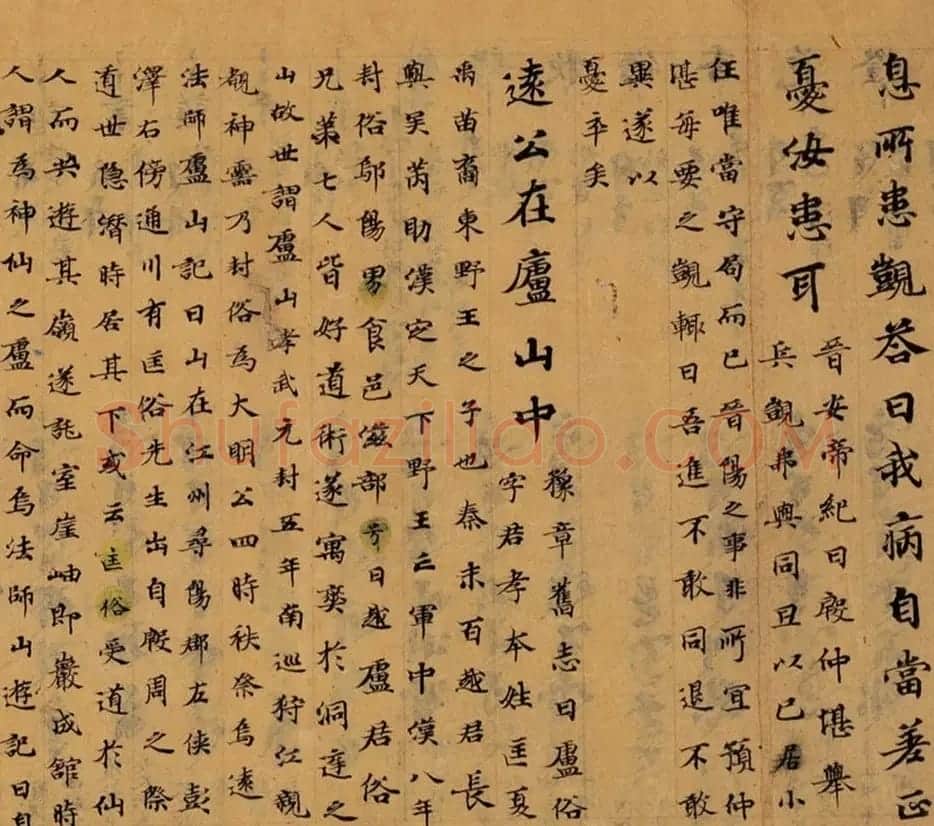 息所患觀荅曰我病自當差正
憂汝患耳 晉安帝紀曰殷仲堪舉
兵觀弗與同且以已居小
任唯當守局而已晉陽之事非所宜預仲
堪每要之觀輙曰吾進不敢同退不敢
異遂以
憂卒矣
遠公在廬山中 豫章舊志曰盧俗
字君孝本姓匡夏
禹苗裔東野王之子也秦末百越君長
與吴芮助漢定天下野王亡軍中漢八年
封俗鄔陽男食邑滋部号曰越盧君俗
兄弟七人皆好道術遂寓爽於洞庭之
山故世謂盧山孝武元封五年南巡狩江親
覩神靈乃封俗為大明公四時秩祭焉遠
法師盧山記曰山在江州尋陽郡左俠彭
澤右傍通川有匡俗先生出自殷周之際
遁世隱潛時居其下或云匡俗受道於仙
人而共遊其嶺遂託室崖岫即巖成舘時
人謂為神仙之盧而命焉法師山遊記曰自
Shufaziliao.COM